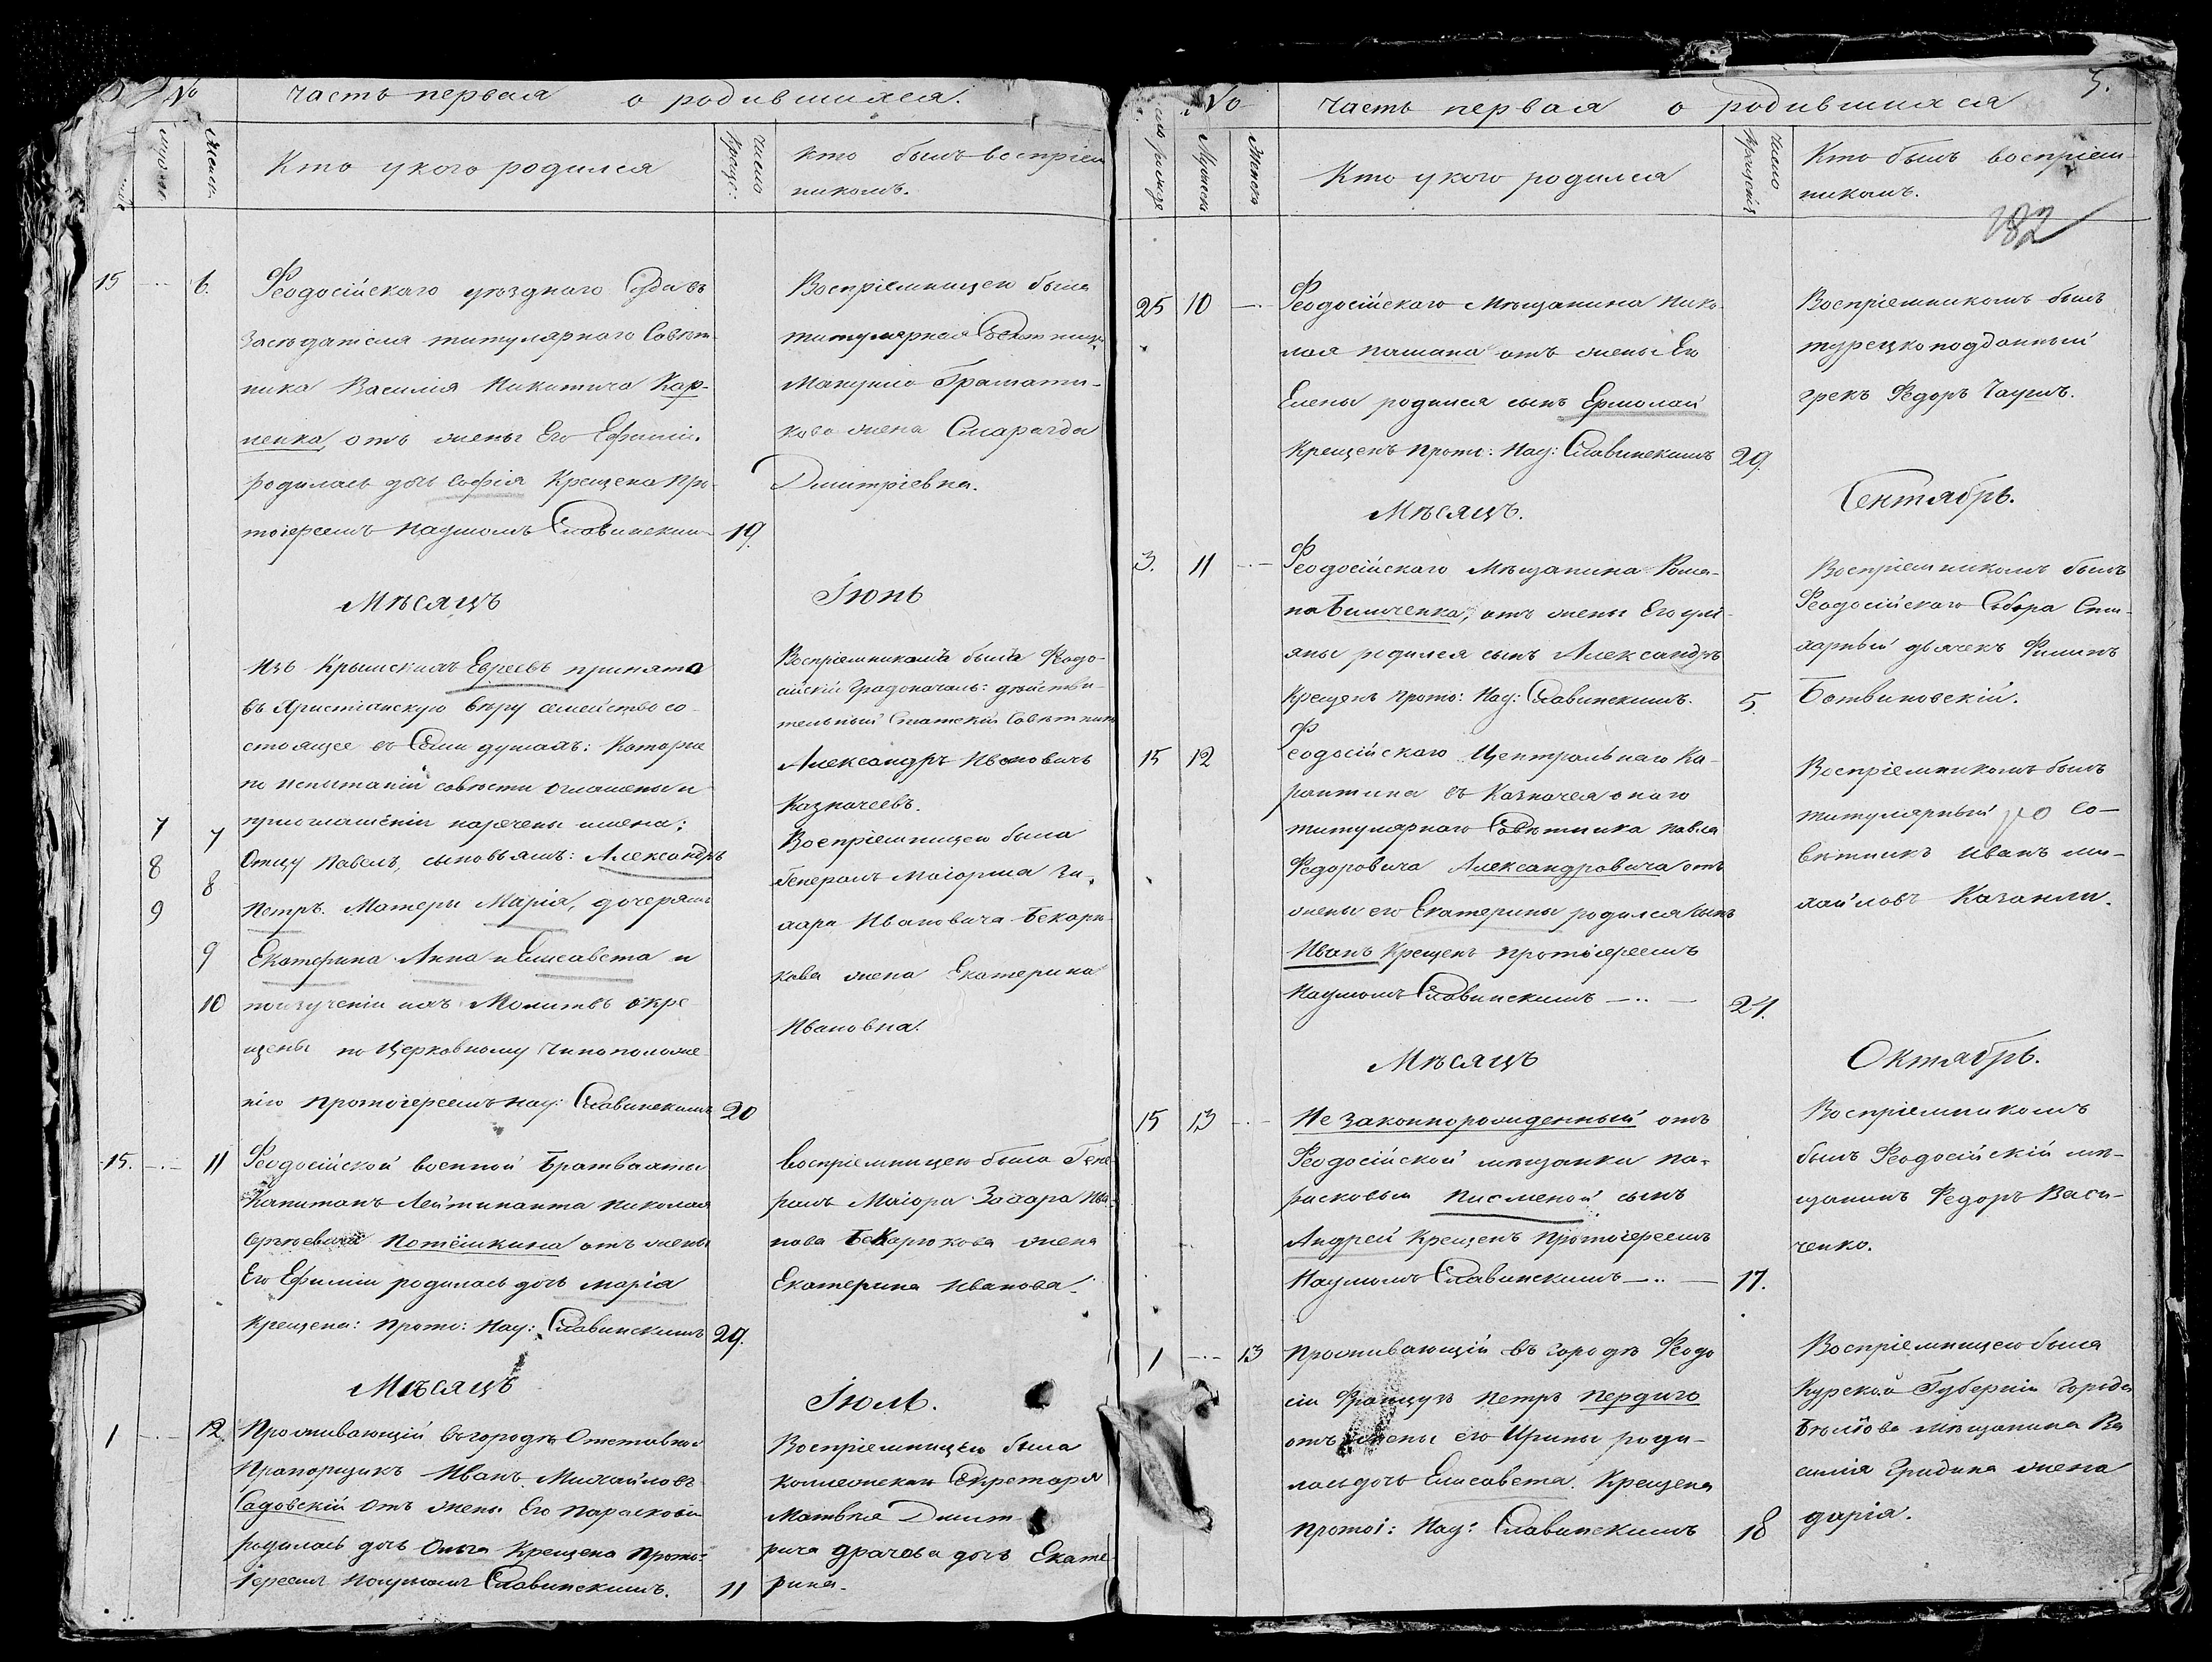 № часть первая о родившихся.
Женск
Кто у кого родился
число креще:
Кто былъ воспріем
никомъ.
15 6. Феодосійскаго уѣзднаго Суда въ
Засѣдателя титулярнаго Совѣт-
ника Василія Никитича Кар-
пенка, отъ жены Его Ефиміи
родилась дочь Софія Крещена Про-
тоіереемъ Наумомъ Славинским 19.
Воспріемницею была
титулярнаго Совѣтника
Мануила Грамати-
кова жена Смарагда
Дмитріевна.
Мѣсяцъ Іюнь
Изъ Крымскихъ Евреевъ принято
въ Христіанскую вѣру семейство со-
стоящее въ Семи душахъ: Которые
по испытаніи совѣсти оглашены и
приглашеніи наречены имена:
7 7 Отцу Павелъ, сыновьямъ: Александръ
8 8
9 Петръ. Матери Марія, дочерямъ
9 Екатерина Анна и Елисавета и
10 поизученіи ихъ Молитвъ окре
щены по Церковному Чиноположе
нію протоіереемъ Нау: Славинскимъ 20
Воспріемникомъ былъ Феодо-
сійскій Градоначаль: дѣйстви-
тельный Статскій Совѣтникъ
Александръ Ивановичъ
Казначеевъ.
Воспріемницею была
Генералъ Маіорша За-
хара Ивановича Бекарю
кова жена Екатерина
Ивановна.
15. 11 Феодосійской военной Брантвахты
Капитанъ-Лейтинанта Николая
Сргѣевича Потёмкина отъ жены
Его Ефиміи родилась дочь Марія
Крещена: прото: Нау: Славинскимъ 29.
Воспріемницею была Гене-
ралъ Маіора Захара Ива-
нова Бекарюкова жена
Екатерина Иванова.
Мѣсяцъ Іюль.
1 12 Проживающій въ городѣ Отставной
Прапорщикъ Иванъ Михайловъ
Садовскій отъ жены Его Парасковіи
родилась дочь Ольга Крещена прото-
іереемъ Наумомъ Славинскимъ. 11
Воспріемницею была
Коллежскаго Секретаря
Матвѣя Дмит
рича Драчева дочь Екате-
рина.
№ часть первая о родившихся 5.
число рожде
Мужска
Женска
Кто у кого родился
Число Крещенія
Кто былъ воспріем-
никомъ.
182
25 10 Феодосійскаго Мѣщанина Нико-
лая Пашана отъ жены Его
Елены родился сынъ Ермолай
Крещенъ прото: Нау: Славинскимъ 29.
Воспріемникомъ былъ
турецкоподданный
грекъ Федоръ Чаушъ.
Мѣсяцъ. Сентябрь.
3. 11 Феодосійскаго Мѣщанина Рома-
на Бильченка, отъ жены Его Ули
яны родился сынъ Александръ
Крещенъ прото: Нау: Славинскимъ. 5.
Воспріемникомъ былъ
Феодосійскаго Собора Сти-
харный дьячекъ Филипъ
Ботвиновскій.
15 12 Феодосійскаго Центральнаго Ка-
рантина въ Казначея онаго
титулярнаго Совѣтника Павла
Федоровича Александровича отъ
жены его Екатерины родился сынъ
Иванъ Крещенъ протоіереемъ
Наумомъ Славинскимъ 24.
Воспріемникомъ былъ
титулярный Со-
вѣтникъ Иванъ Ми-
хайловъ Казанли.
Мѣсяцъ Октябрь.
15 13 Не законнорожденный отъ
Феодосійской мѣщанки Па-
расковьи Писменой сынъ
Андрей Крещенъ Протоіереемъ
Наумомъ Славинскимъ 17.
Воспріемникомъ
былъ Феодосійскій мѣ-
щанинъ Федоръ Васи-
ченко.
1 13 Проживающій въ городѣ Феодо
сіи Французъ Петръ Пердиго
отъ жены его Ирины роди-
лась дочь Елисавета. Крещена
протоі: Нау: Славинскимъ 18
Воспріемницею была
Курской Губерніи города
мѣщанина Ва
силія Гридина жена
дарія.